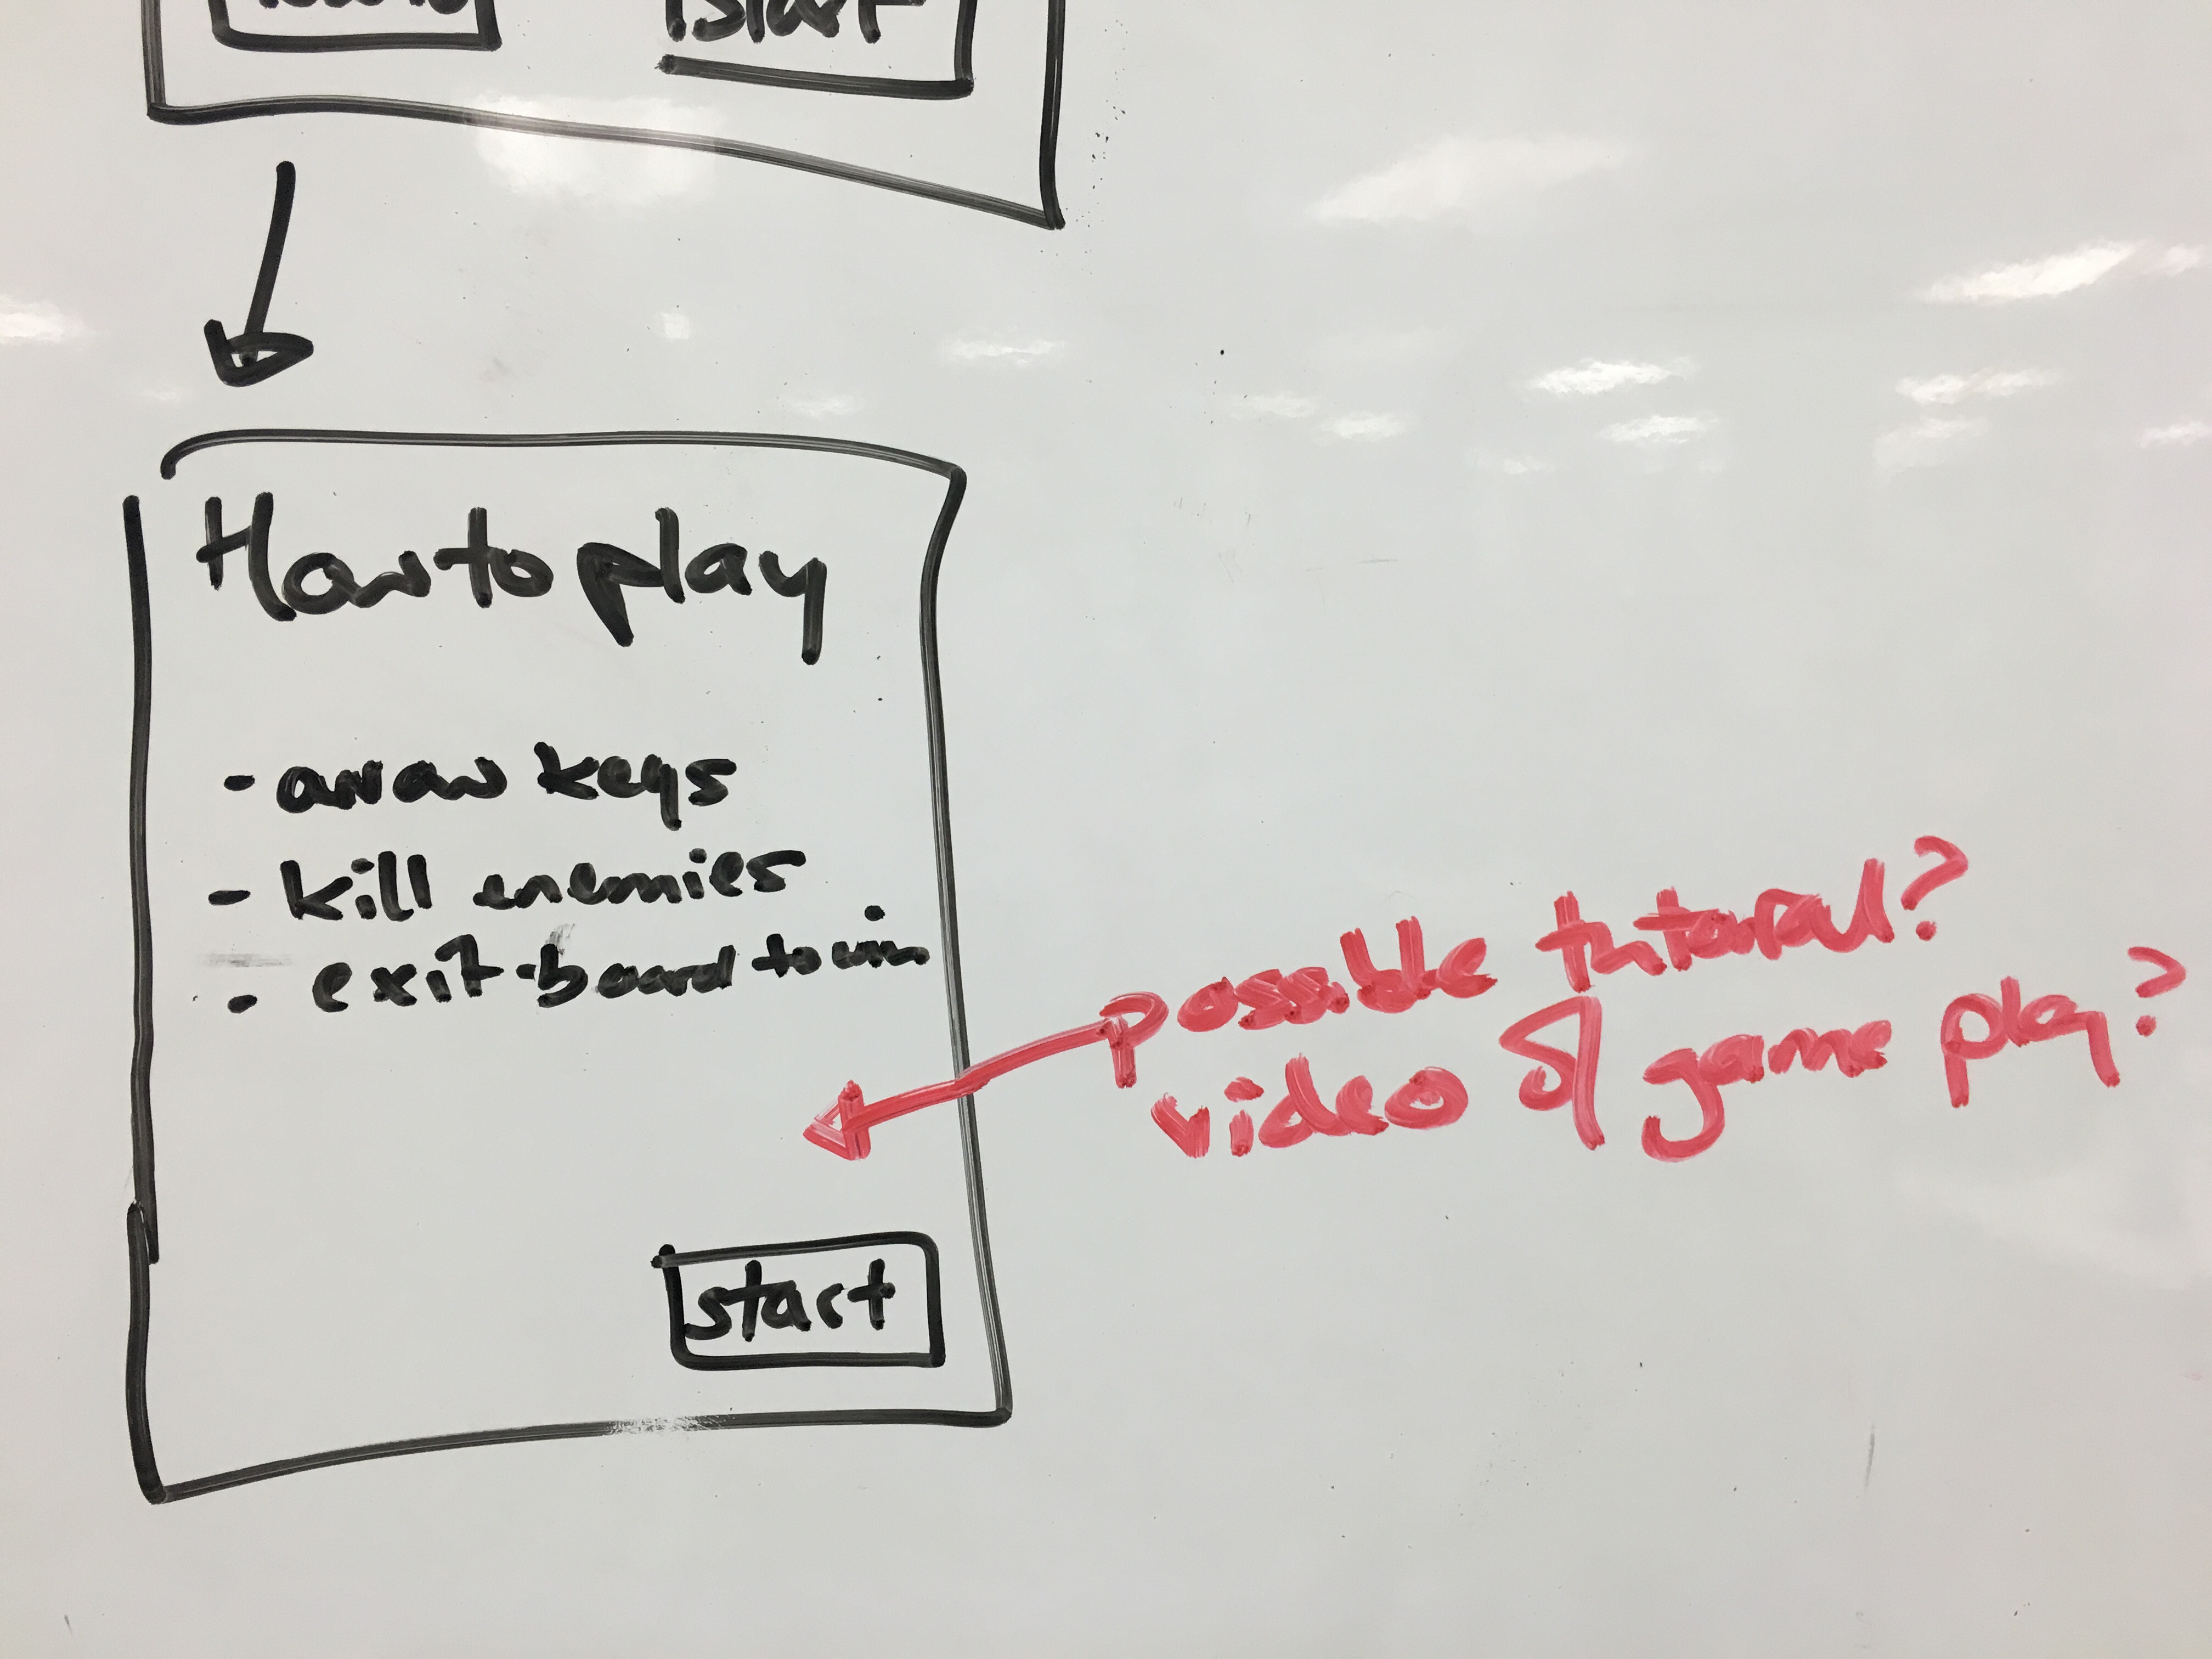 start
How to play
- arrow keys
- kill enemies
- exit board to win
possible tutorial?
video of game play?
start